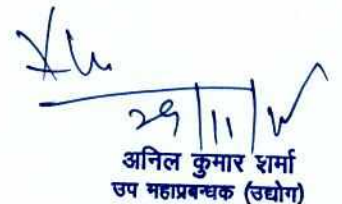 29/11/
अनिल कुमार शर्मा
उप महाप्रबन्धक (उद्योग)